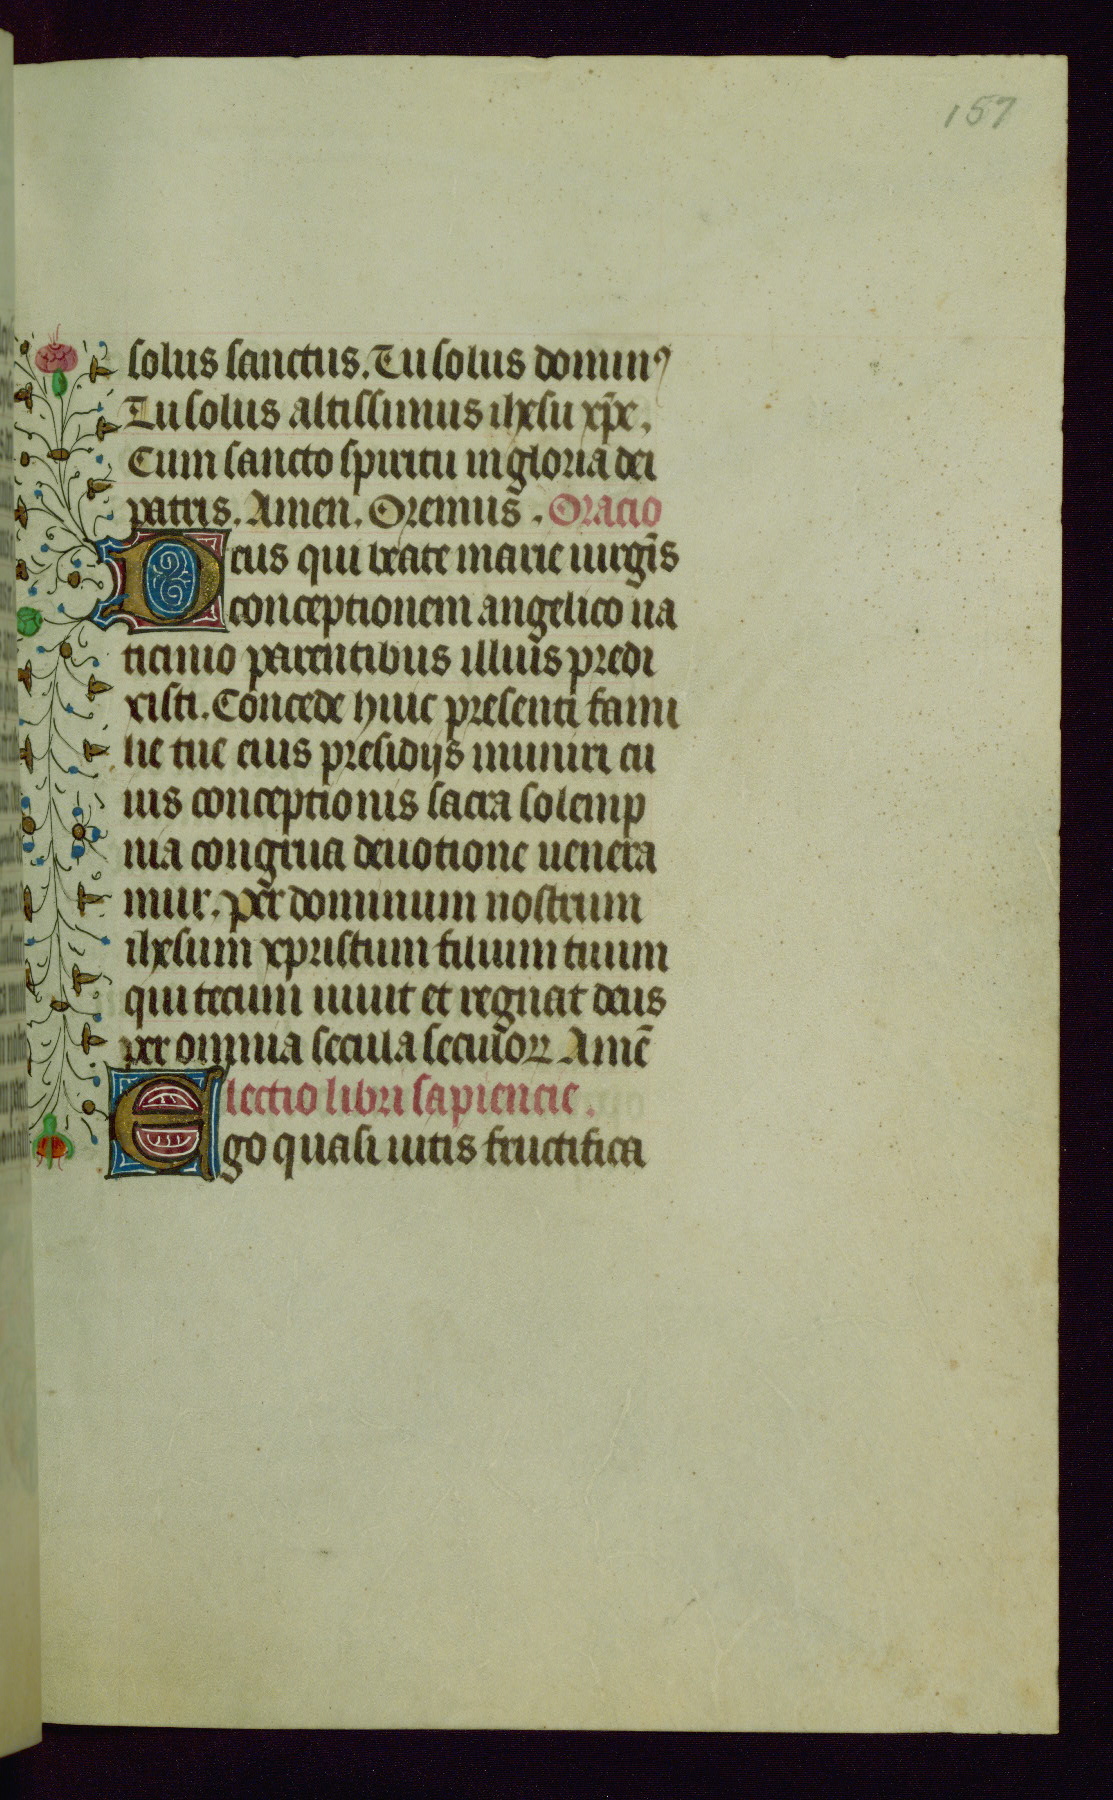 157
solus sanctus. Tu solus dominꝰ
Tu solus altissimus ihesu xp̄e.
Cum sancto spiritu in gloria dei
patris. Amen. Oremus. Oracio
Deus qui beate marie uirgīs
conceptionem angelico ua
ticinio parentibus illius predi
xisti. Concede huic presenti fami
lie tue eius presidijs muniri cu
ius conceptionis sacra solemp
nia congrua deuotione uenera
mur. per dominum nostrum
ihesum xpristum filium tuum
qui tecum uiuit et regnat deus
per omnia secula seculoꝝ Amē
lectio libri sapiencie.
Ego quasi uitis fructifica